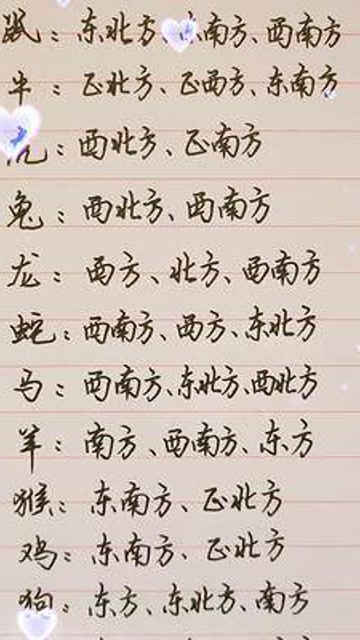 鼠：东北方、东南方、西南方
牛：正北方、正西方、东南方
虎：西北方、正南方
兔：西北方、西南方
龙：西方、北方、西南方
蛇：西南方、西方、东北方
马：西南方、东北方、西北方
羊：南方、西南方、东方
猴：东南方、正北方
鸡：东南方、正北方
狗：东方、东北方、南方